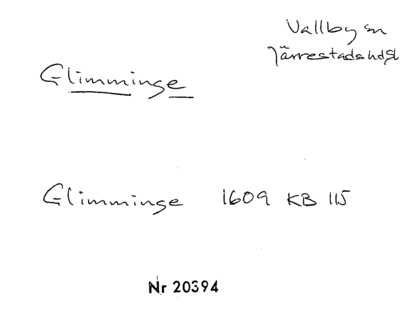 Vallby sn
Järrestads hd
Glimminge
Glimminge 1609 KB 115
Nr 20394